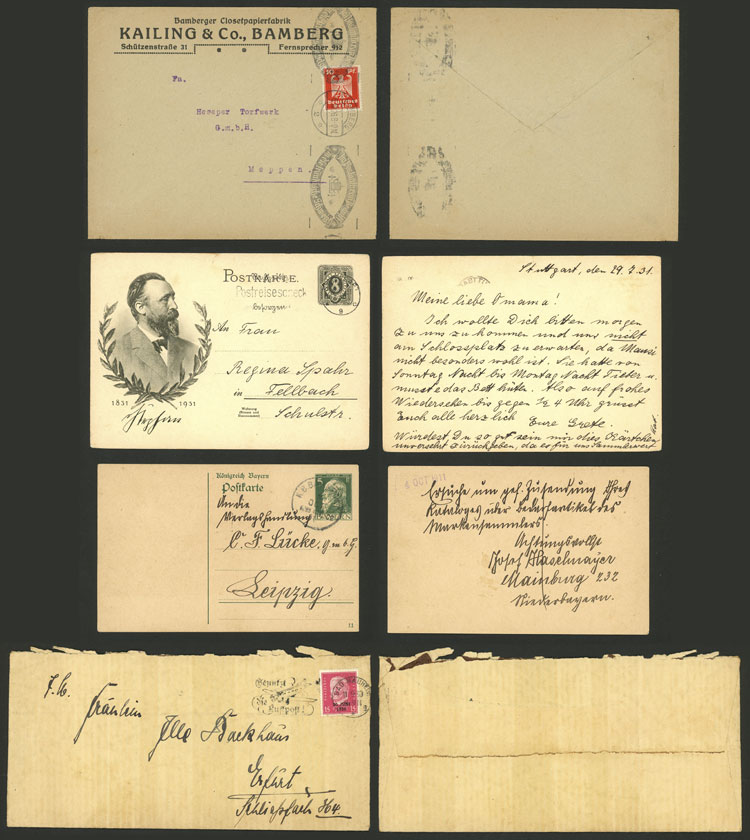 Bamberger Closetpapierfabrik
KAILING & Co., BAMBERG
Schützenstraße 31 Fernsprecher 912
Fa.
Heseper Torfwerk
G.m.b.H.
Meppen.
10 Pf.
Deutsches
Reich
POSTKARTE
Postreisescheck
8
An Frau
Regina Spahr
in Fellbach
Schulstr
1831 1931
Stephan
Stuttgart, den 29.
Meine liebe Omama!
Ich wollte Dich bitten morgen
zu uns zu kommen und uns nicht
am Schlossplatz zu erwarten, da Mausi
nicht besonders wohl ist. Sie hatte von
Sonntag Nacht bis Montag Nacht Fieber u.
musste das Bett hüten. Also auf frohes
Wiedersehen bis gegen ½ 4 Uhr grüsst
Euch alle herzlich
Eure Grete.
Würdest Du so gut sein mir dies Kärtchen
unversehrt zurückgeben, da es für uns Sammelwert
hat.
Königreich Bayern
Postkarte
An die
Verlagshandlung
C. F. Lücke, G.m.b.H.
Leipzig.
11
6 OCT 1911
Ersuche um gef. Zusendung Ihres
Kataloges über Bedarfsartikel des
Markensammlers.
Achtungsvollst
Josef Haselmayer
Mainburg 232
Niederbayern.
Benutzt
Luftpost
15 15
Fräulein
Illa Backhaus
Erfurt
Schließfach 364